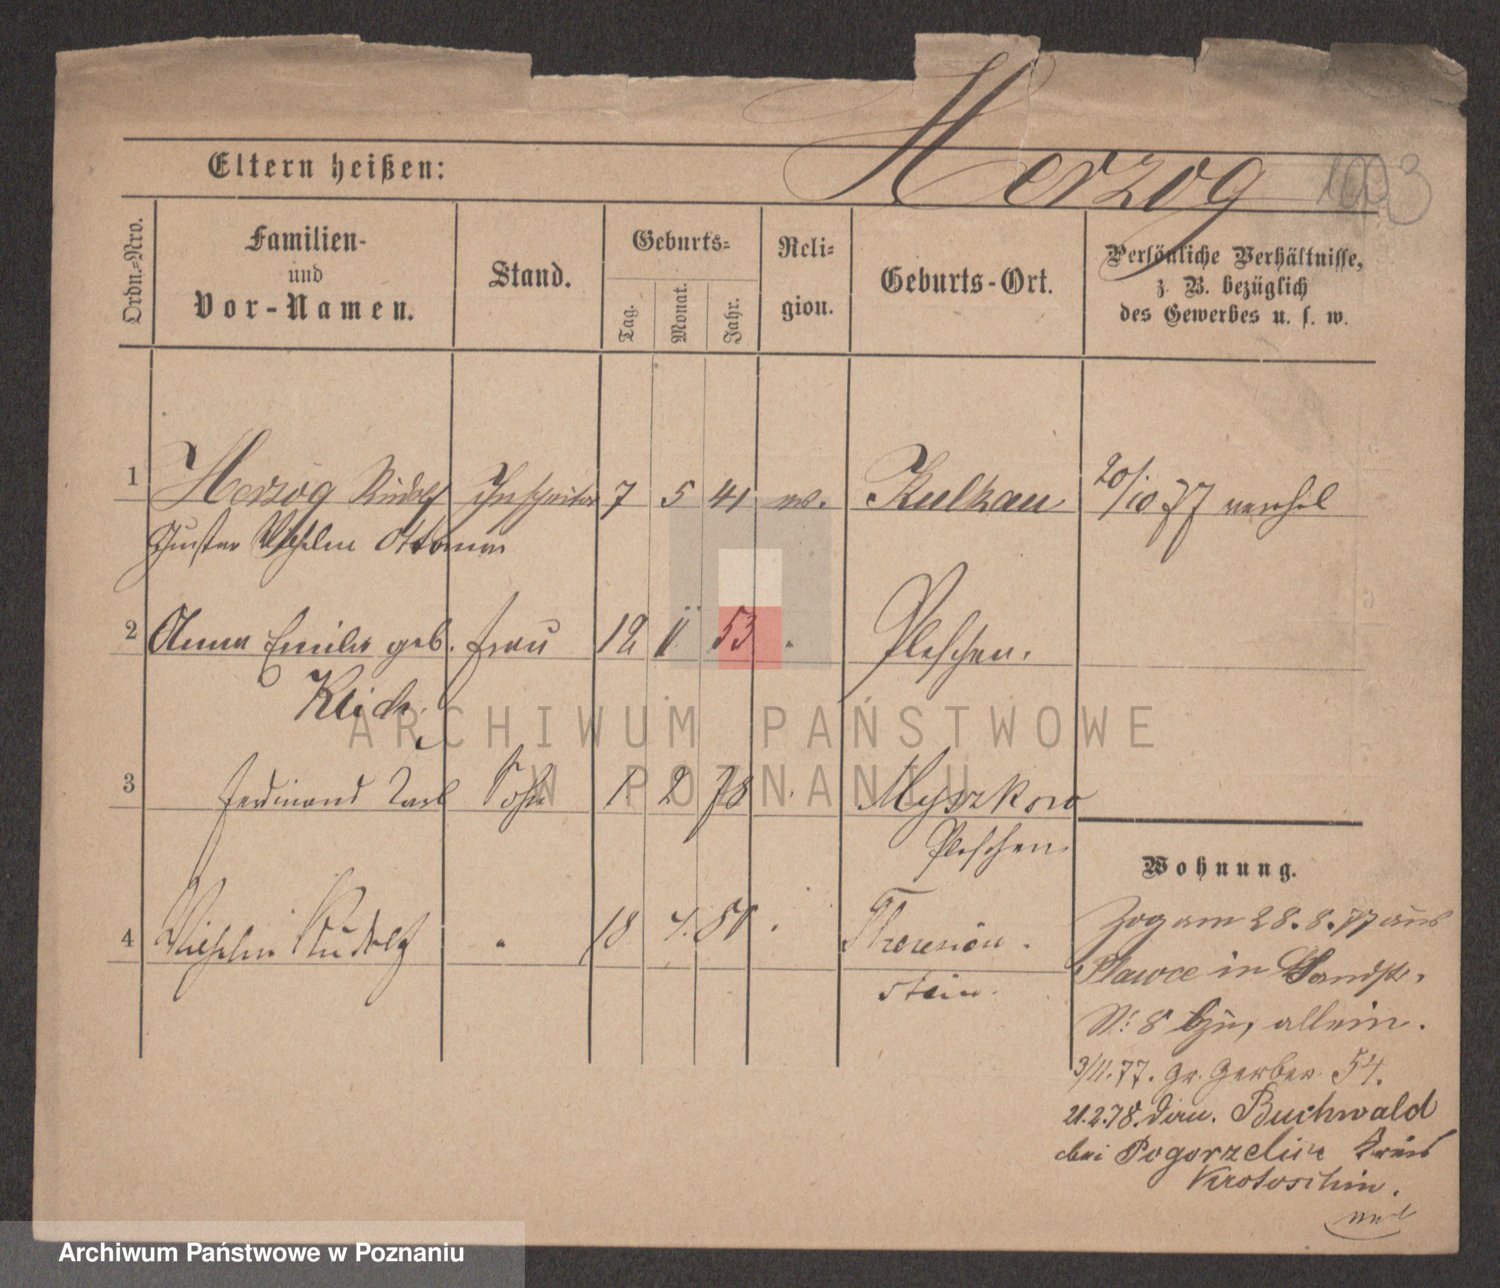 Herzog
193
Eltern heißen:
Ordn.=Nro.
Familien-
und
Vor-Namen.
Stand.
Geburts=
Tag.
Monat.
Jahr.
Reli=
gion.
Geburts-Ort.
Persönliche Verhältnisse,
z. B. bezüglich
des Gewerbes u. s. w.
1 Herzog Rudolf Inspector 7 5 41 ev. 20/10 77 verehel
Gustav Wilhelm Ottomar
2 Anna Emilie geb. Frau 12 11 53 Pleschen.
3 Ferdinand Carl Sohn 1. 2 78 Myszkow
Pleschen
4 Wilhelm Rudolf 18 4. 80 Theresien
stein.
Wohnung.
Zog am 28.8.77 aus
in
No 8 allein.
3/11.77. Gr. Gerber 54.
21.2.78. Buchwald
bei Pogorzelice Kreis
Krotoschin.
ARCHIWUM PAŃSTWOWE
W POZNANIU
Archiwum Państwowe w Poznaniu